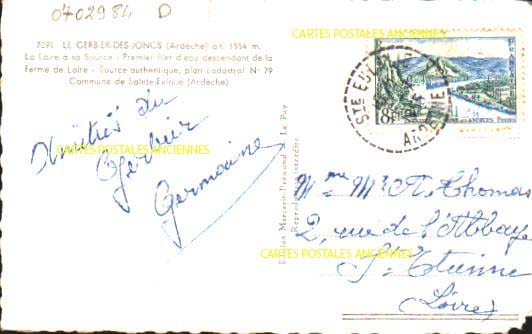 0702984 D
CARTES POSTALES ANCIENNES
7091 LE GERBIER-DES-JONCS (Ardèche) alt. 1554 m.
La Loire à sa Source - Premier filet d'eau descendant de la
Ferme de Loire - Source authentique, plan cadastral N° 79
Commune de Sainte-Eulalie (Ardèche)
Amitiés du
CARTES POSTALES ANCIENNES
Gerbier
Germaine
Edition Margerit-Brémond - Le Puy
Reproduction interdite
18F
STE EULALIE
ARDECHE
CARTES POSTALES ANCIENNES
Mme Mr A. Thomas
2, rue de l'Abbaye
CARTES POSTALES ANCIENNES
St-Etienne
(Loire)